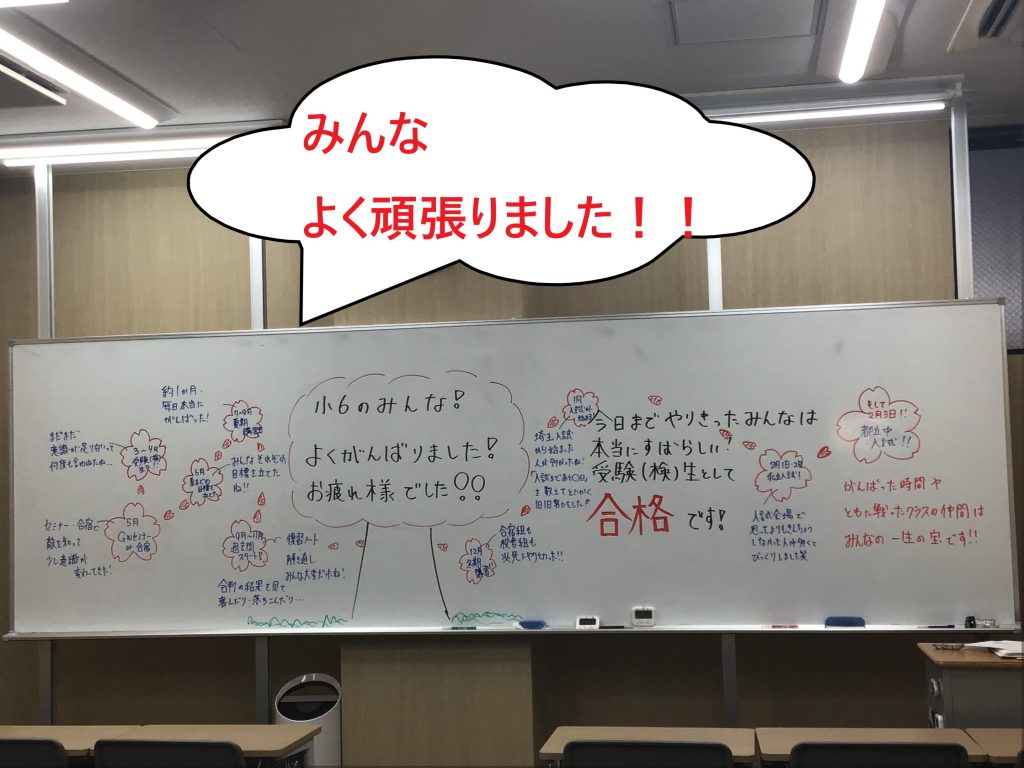 みんな
よく頑張りました！！
小6のみんな！
よくがんばりました！
お疲れ様でした
今日までやりきったみんなは
本当にすばらしい！
受験(検)生として
合格です！
約1か月、
毎日本当に
がんばった！
7〜8月
夏期
講習
まだまだ
意識が足りないって
何度も言われたね…
3〜4月
受験(検)
生に
6月
みんなそれぞれ
目標を立てた
ね!!
セミナー・合宿で
敵を知って
少し意識が
変わってきた！
5月
GWセミナー
or 合宿
9月〜11月
過去問
スタート
練習ノート
解き直し
みんな大変だったね！
合判の結果を見て
喜んだり・落ちこんだり…
12月
冬期
講習
合宿組も
校舎組も
立派にやりきった!!
1月
入試が
始まる
埼玉入試
から始まった
人が多かったね！
入試まであと〇日
を数えてとにかく
2月1日・2日
私立入試！
入試会場で
思ったよりきんちょう
しなかった人が多くて
びっくりしました笑
そして
2月3日!!
都立中
入試!!
がんばった時間や
ともに戦ったクラスの仲間は
みんなの一生の宝です!!